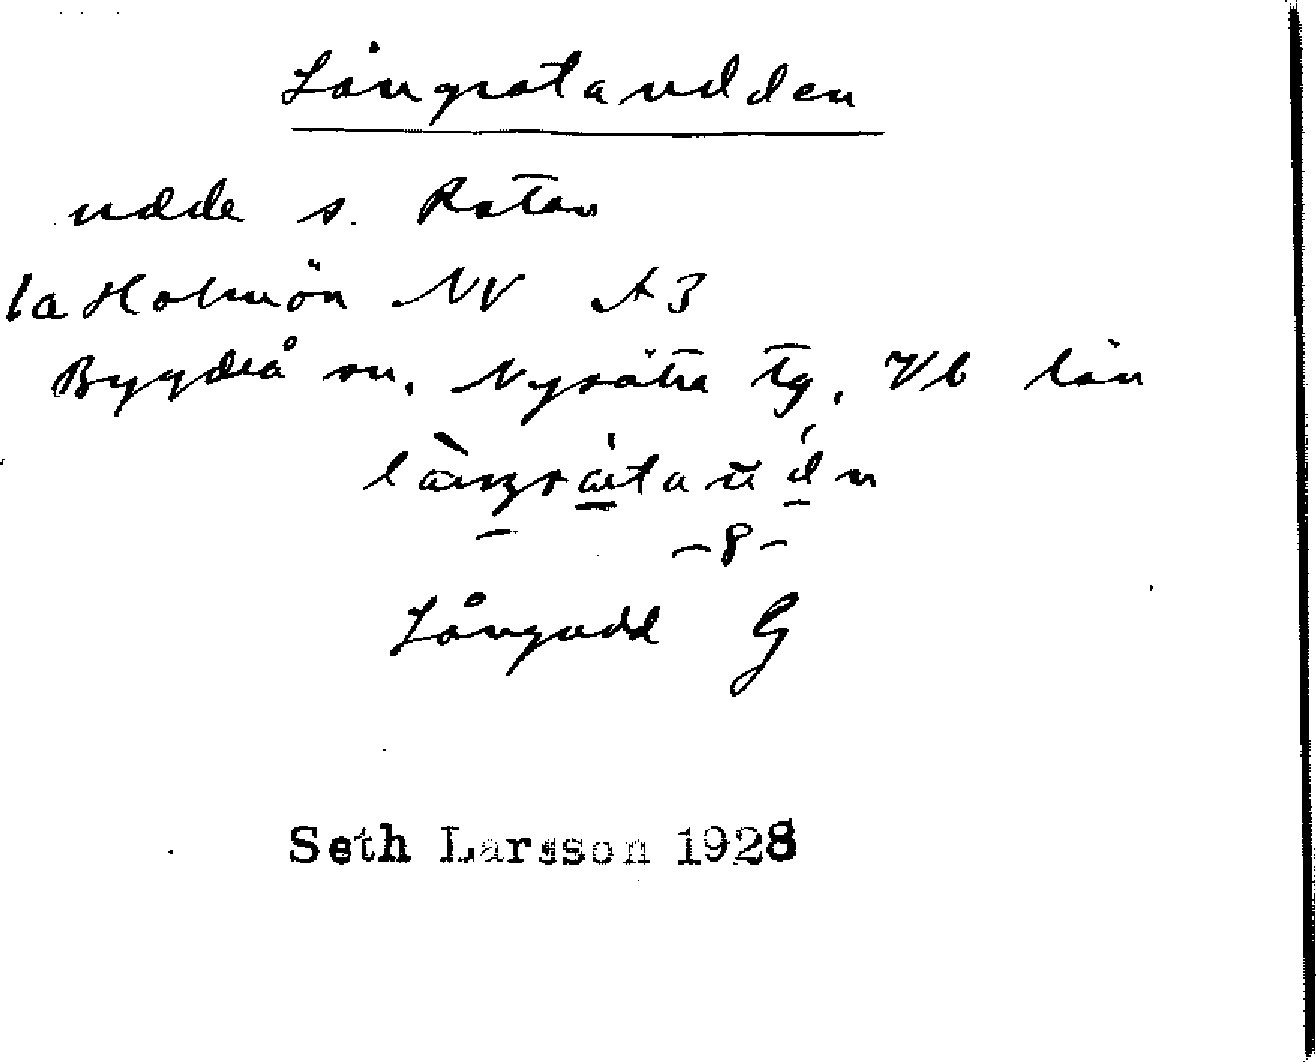 Långratandden
udde s. Ratan
1a Holmön NV A3
Bygdeå sn. Nysätra tg. Vb län
Långudd G
Seth Larsson 1928